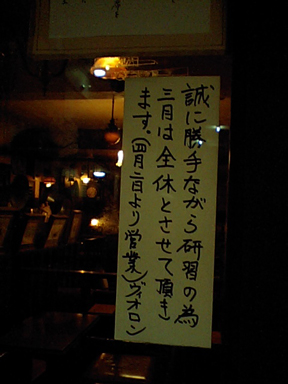 誠に勝手ながら研修の為
三月は全休とさせて頂き
ます。(四月二日より営業)ヴィオロン